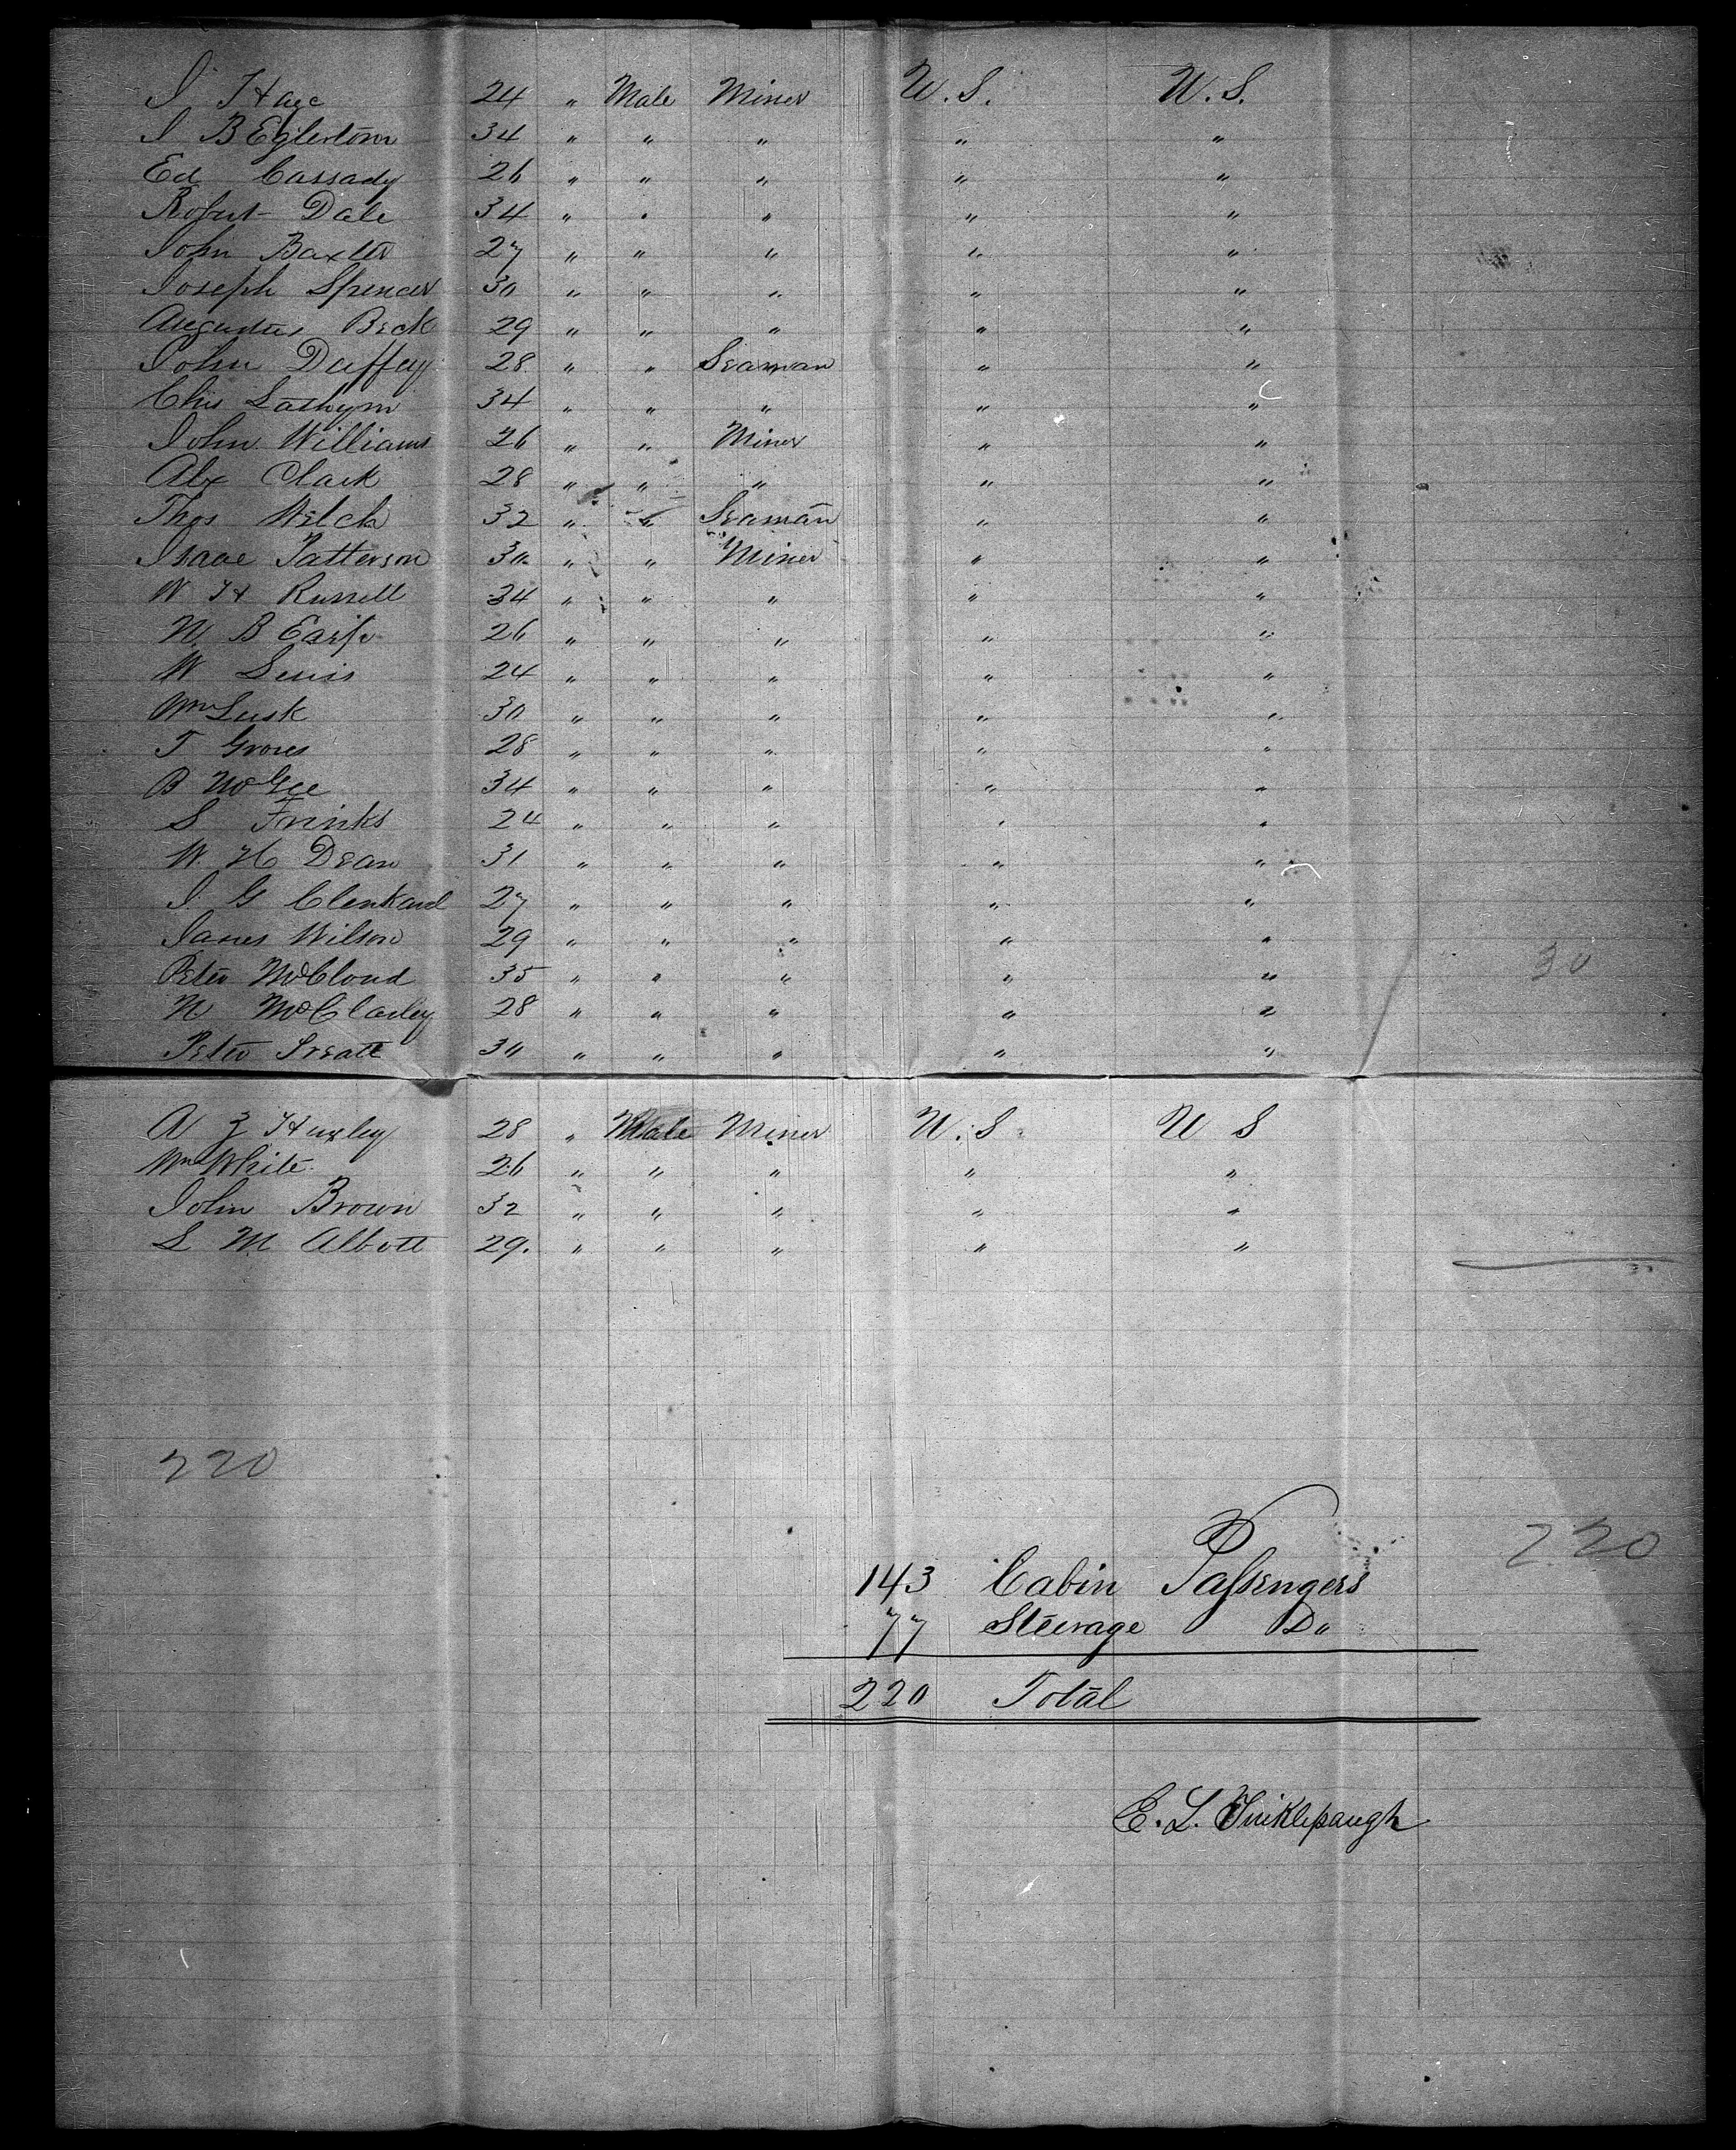 J Hage 24 " Male Miner U.S. U.S.
J B Eglestown 34 " " " " "
Ed Cassady 26 " " " " "
Robert Dale 34 " " " " "
John Baxter 27 " " " " "
Joseph Spencer 30 " " " " "
Augustus Beck 29 " " " " "
John Duffey 28 " " Seaman " "
Chs Lathym 34 " " " " "
John Williams 26 " " Miner " "
Alx Clark 28 " " " " "
Thos Welch 32 " " Seaman " "
Isaac Patterson 30 " " Miner " "
W H Russell 34 " " " " "
N. B 26 " " " " "
W Lewis 24 " " " " "
Wm Lusk 30 " " " " "
T Groves 28 " " " " "
B McGee 34 " " " " "
S Frinks 24 " " " " "
W. H Dean 31 " " " " "
J. G Clenkard 27 " " " " "
James Wilson 29 " " " " "
Peter McCloud 35 " " " " " 30
N McClarley 28 " " " " "
Peter Sreatt 30 " " " " "
A Z Huxley 28 " Male Miner U.S U S
Wm White 26 " " " " "
John Brown 32 " " " " "
L M Albott 29. " " " " "
220
220
143 Cabin Passengers
77 Steerage Do
220 Total
E. L. Tinklepaugh